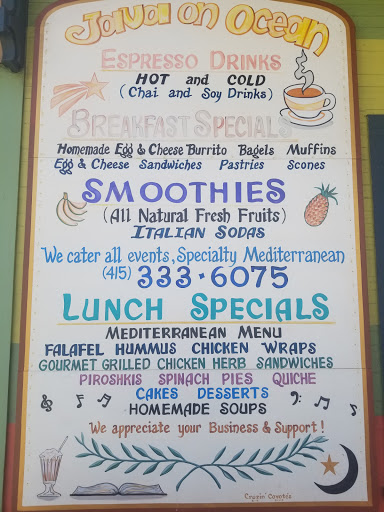 Java on Ocean
ESPRESSO DRINKS
HOT and COLD
(Chai and Soy Drinks)
BREAKFAST SPECIALS
Homemade Egg & Cheese Burrito Bagels Muffins
Egg & Cheese Sandwiches Pastries Scones
SMOOTHIES
(All Natural Fresh Fruits)
ITALIAN SODAS
We cater all events, Specialty Mediterranean
(415) 333-6075
LUNCH SPECIALS
MEDITERRANEAN MENU
FALAFEL HUMMUS CHICKEN WRAPS
GOURMET GRILLED CHICKEN HERB SANDWICHES
PIROSHKIS SPINACH PIES QUICHE
CAKES DESSERTS
HOMEMADE SOUPS
We appreciate your Business & Support!